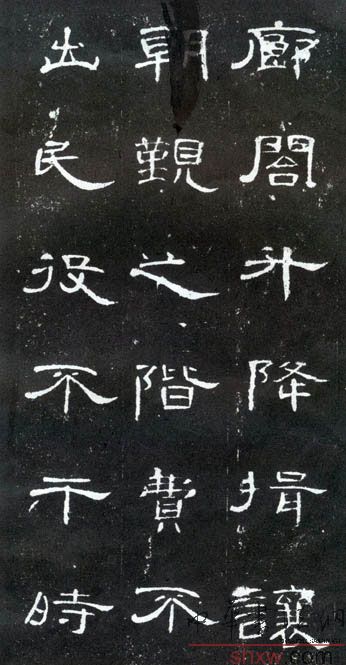 廊閤升降揖讓
朝覲之階費不
出民役不干時
shxw.com